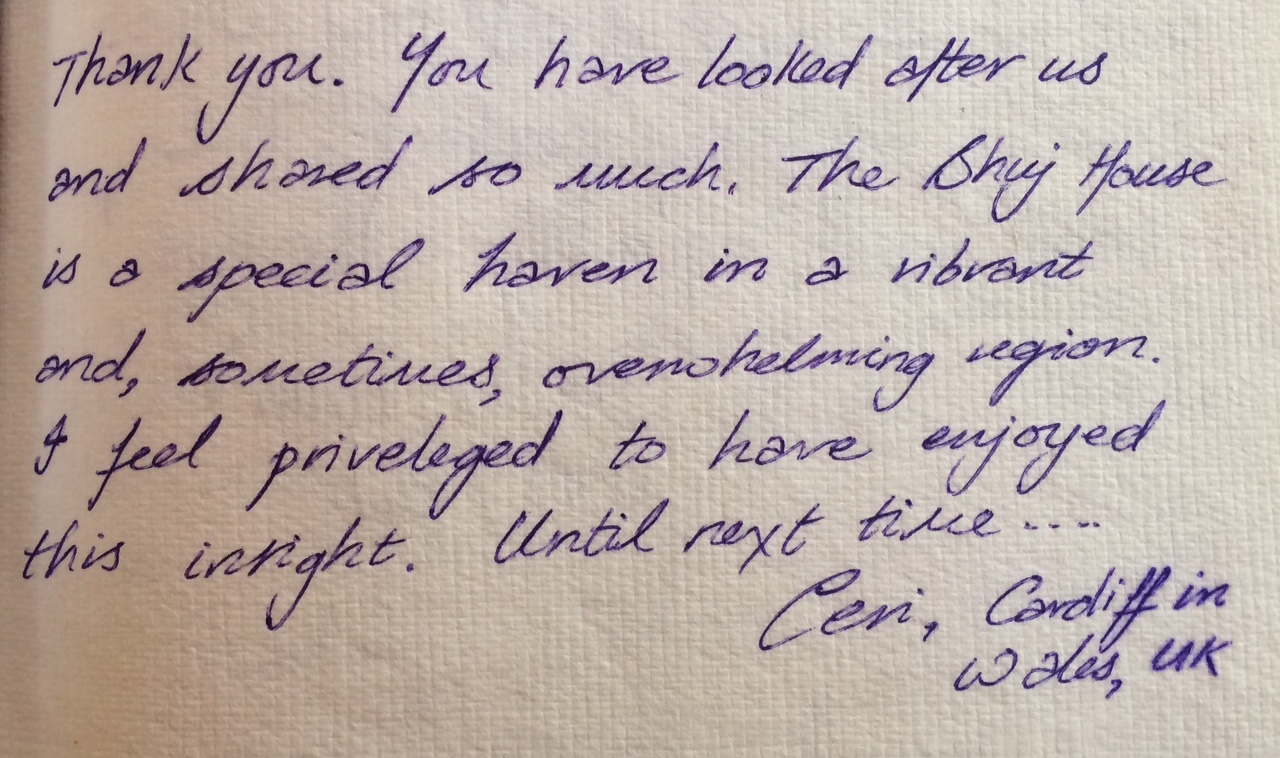 Thank you. You have looked after us
and shared so much. The Bhuj House
is a special haven in a vibrant
and, sometimes, overwhelming region.
I feel priveleged to have enjoyed
this insight. Until next time ....
Ceri, Cardiff in
Wales, UK